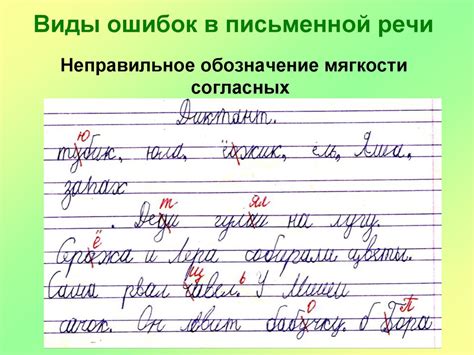 Виды ошибок в письменной речи
Неправильное обозначение мягкости
согласных
Диктант.
ю
тубик, юла, ёожик, ёль, Яша,
запах
т ял
Деди гулаи на лугу.
ё
Сража и Лера собирали цветы.
щ ь
Саша рвал чавел. У Миши
о П
сачок. Он ловит бабучку. б Тора